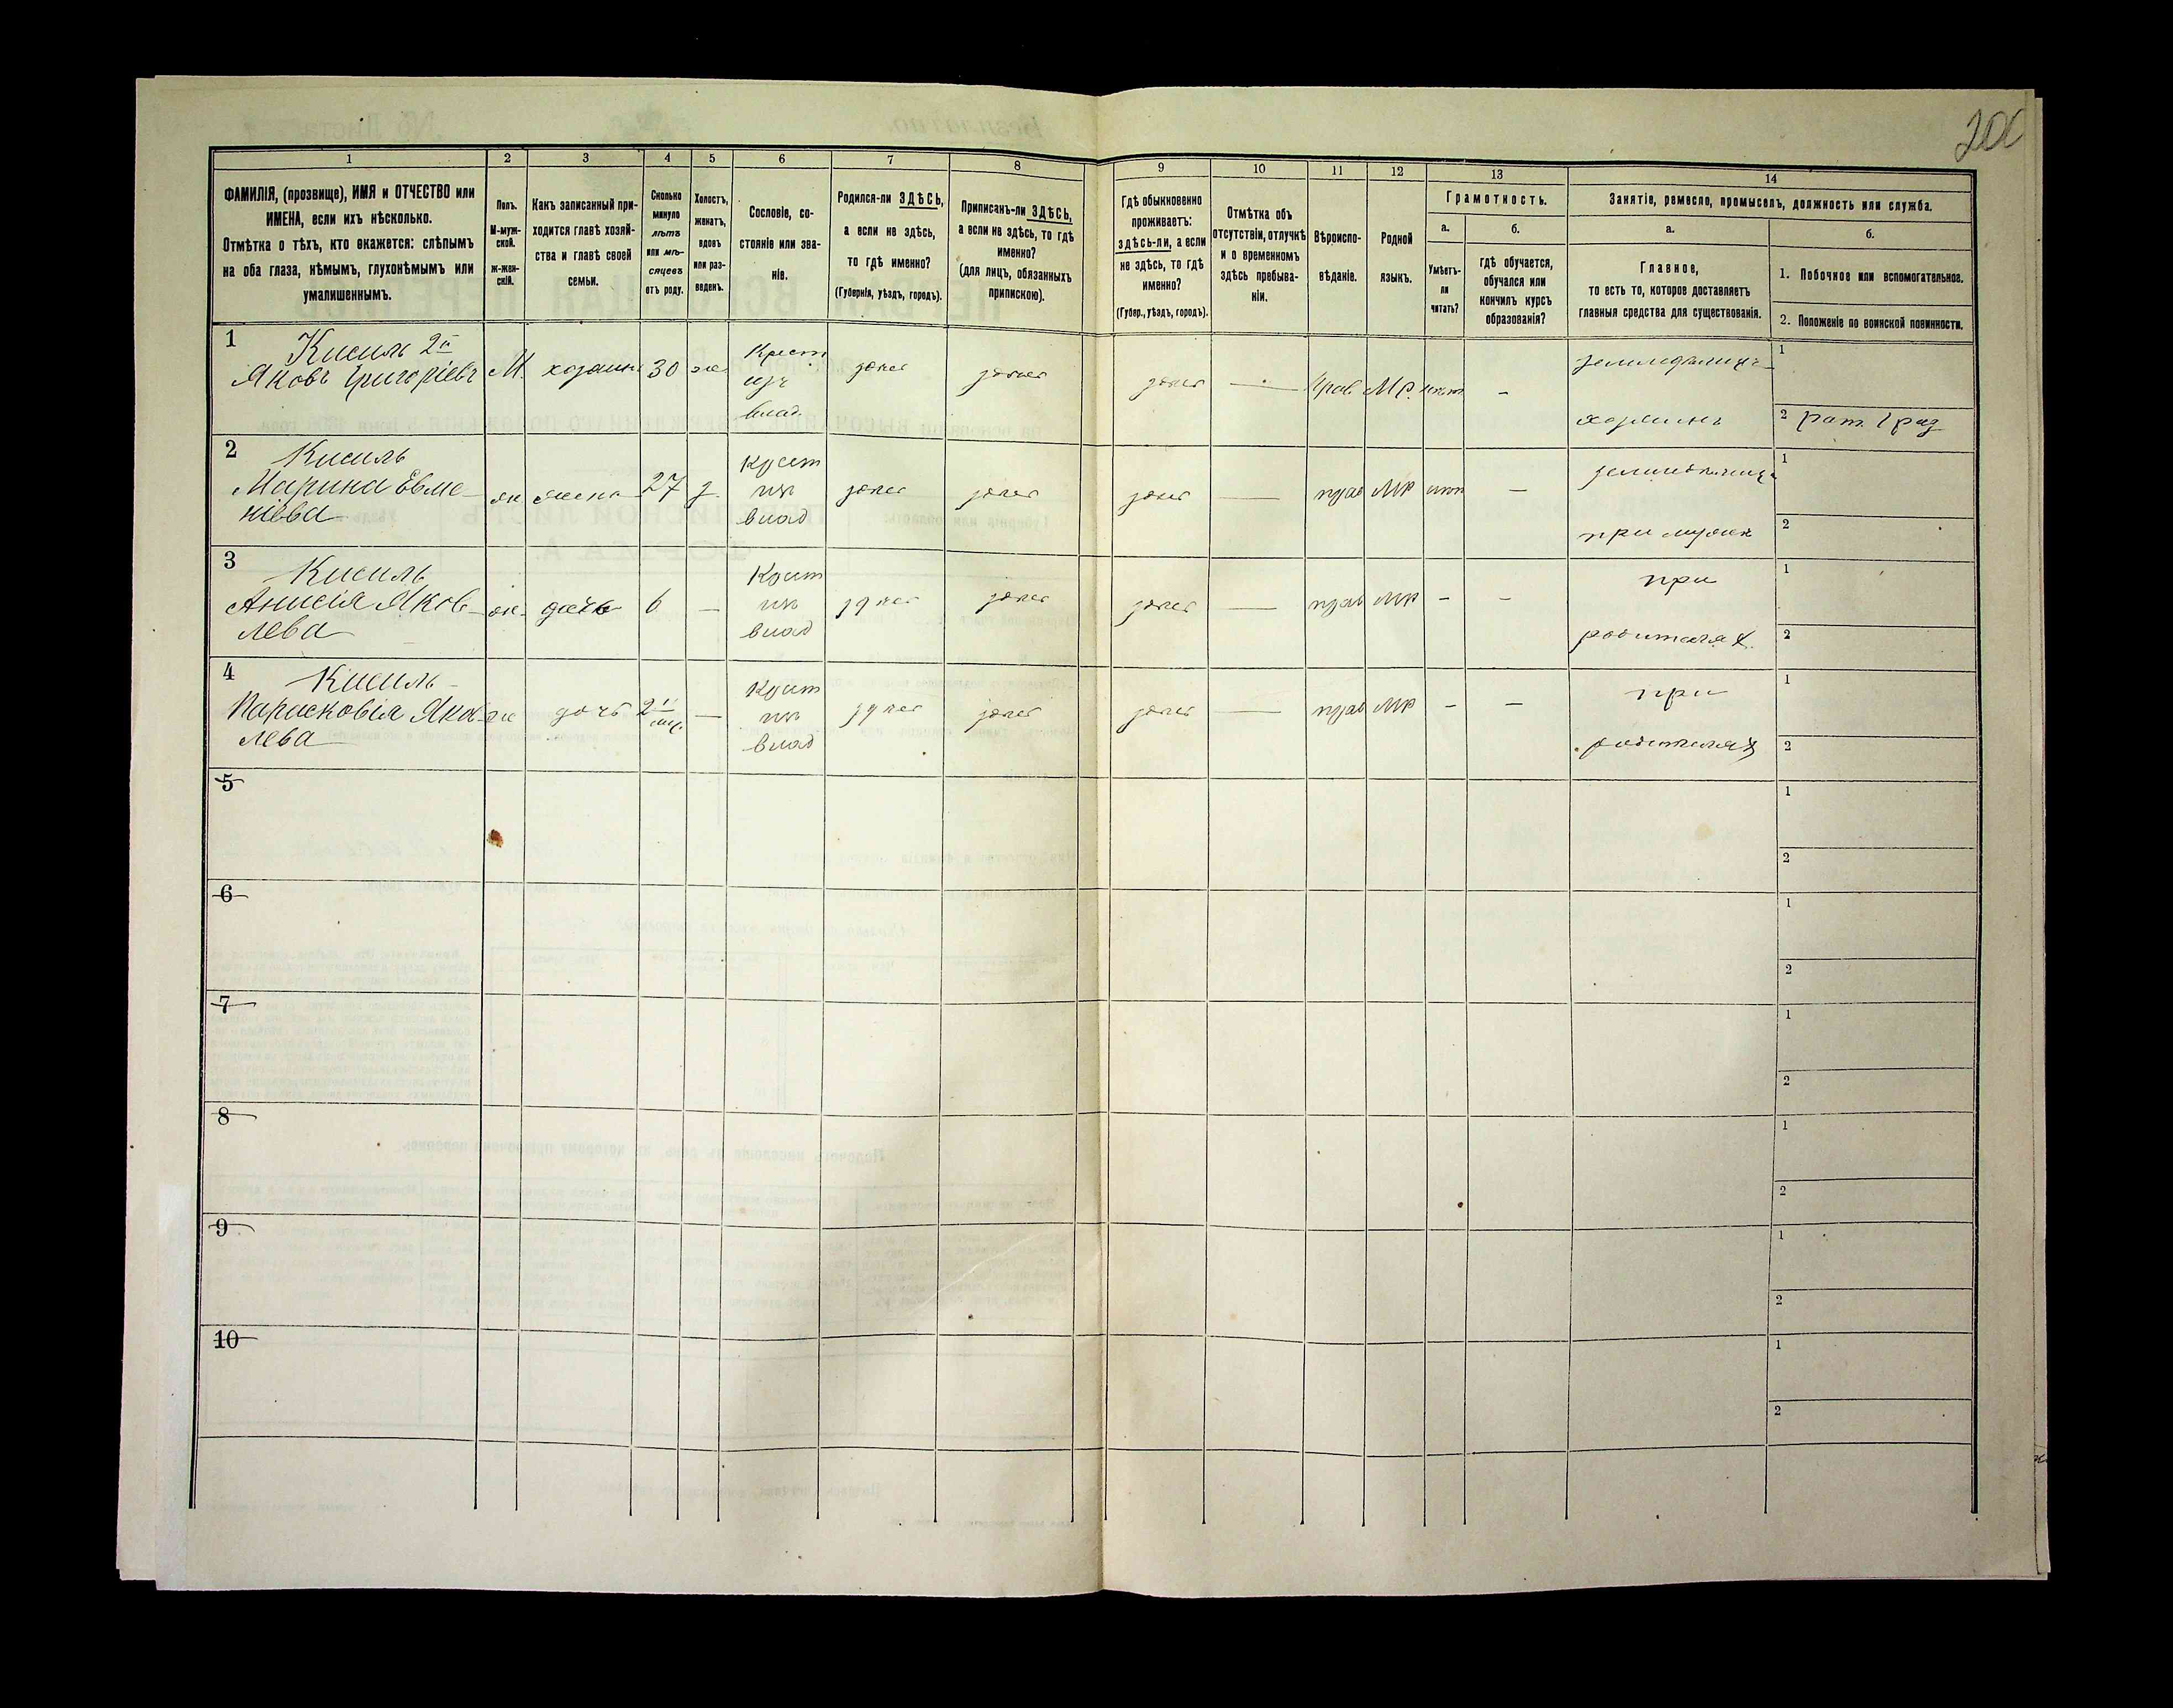 200
1 2 3 4 5 6 7 8 9 10 11 12 13 14
ФАМИЛІЯ, (прозвище), ИМЯ и ОТЧЕСТВО или
ИМЕНА, если ихъ нѣсколько.
Отмѣтка о тѣхъ, кто окажется: слѣпымъ
на оба глаза, нѣмымъ, глухонѣмымъ или
умалишеннымъ.
Полъ.
М-муж-
ской.
ж-жен-
скій.
Какъ записанный при-
ходится главѣ хозяй-
ства и главѣ своей
семьи.
Сколько
минуло
лѣтъ
или мѣ-
сяцевъ
отъ роду.
Холостъ,
женатъ,
вдовъ
или раз-
веденъ.
Сословіе, со-
стояніе или зва-
ніе.
Родился-ли ЗДѢСЬ,
а если не здѣсь,
то гдѣ именно?
(Губернія, уѣздъ, городъ).
Приписанъ-ли ЗДѢСЬ,
а если не здѣсь, то гдѣ
именно?
(для лицъ, обязанныхъ
припискою).
Гдѣ обыкновенно
проживаетъ:
здѣсь-ли, а если
не здѣсь, то гдѣ
именно?
(Губер., уѣздъ, городъ).
Отмѣтка объ
отсутствіи, отлучкѣ
и о временномъ
здѣсь пребыва-
ніи.
Вѣроиспо-
вѣданіе.
Родной
языкъ.
Грамотность.
а.
Умѣетъ-
ли
читать?
б.
гдѣ обучается,
обучался или
кончилъ курсъ
образованія?
Занятіе, ремесло, промыселъ, должность или служба.
а.
Главное,
то есть то, которое доставляетъ
главныя средства для существованія.
б.
1. Побочное или вспомогательное.
2. Положеніе по воинской повинности.
1 Кисиль 2й
Яковъ Григоріевъ М. хозяинъ 30 ж
Крест
изъ
влад.
здѣсь здѣсь здѣсь — Прав М.Р. нѣт - земледѣлиць
хозяинъ
1
2 рат. 1 раз
2 Кисиль
Марина Евме-
ніева ж жена 27 з.
крест
изъ
влад
здѣсь здѣсь здѣсь — прав МР нѣт — земледѣлиць
при мужѣ
1
2
3 Кисиль
Анисія Яков-
лева ж. дочь 6 —
Крест
изъ
влад
здѣсь здѣсь здѣсь — прав МР - - при
родителях.
1
2
4 Кисиль
Парасковія Яков-
лева ж дочь 2 мѣс. —
Крест
изъ
влад
здѣсь здѣсь здѣсь — прав МР - — при
родителях
1
2
5
1
2
6
1
2
7
1
2
8
1
2
9
1
2
10
1
2